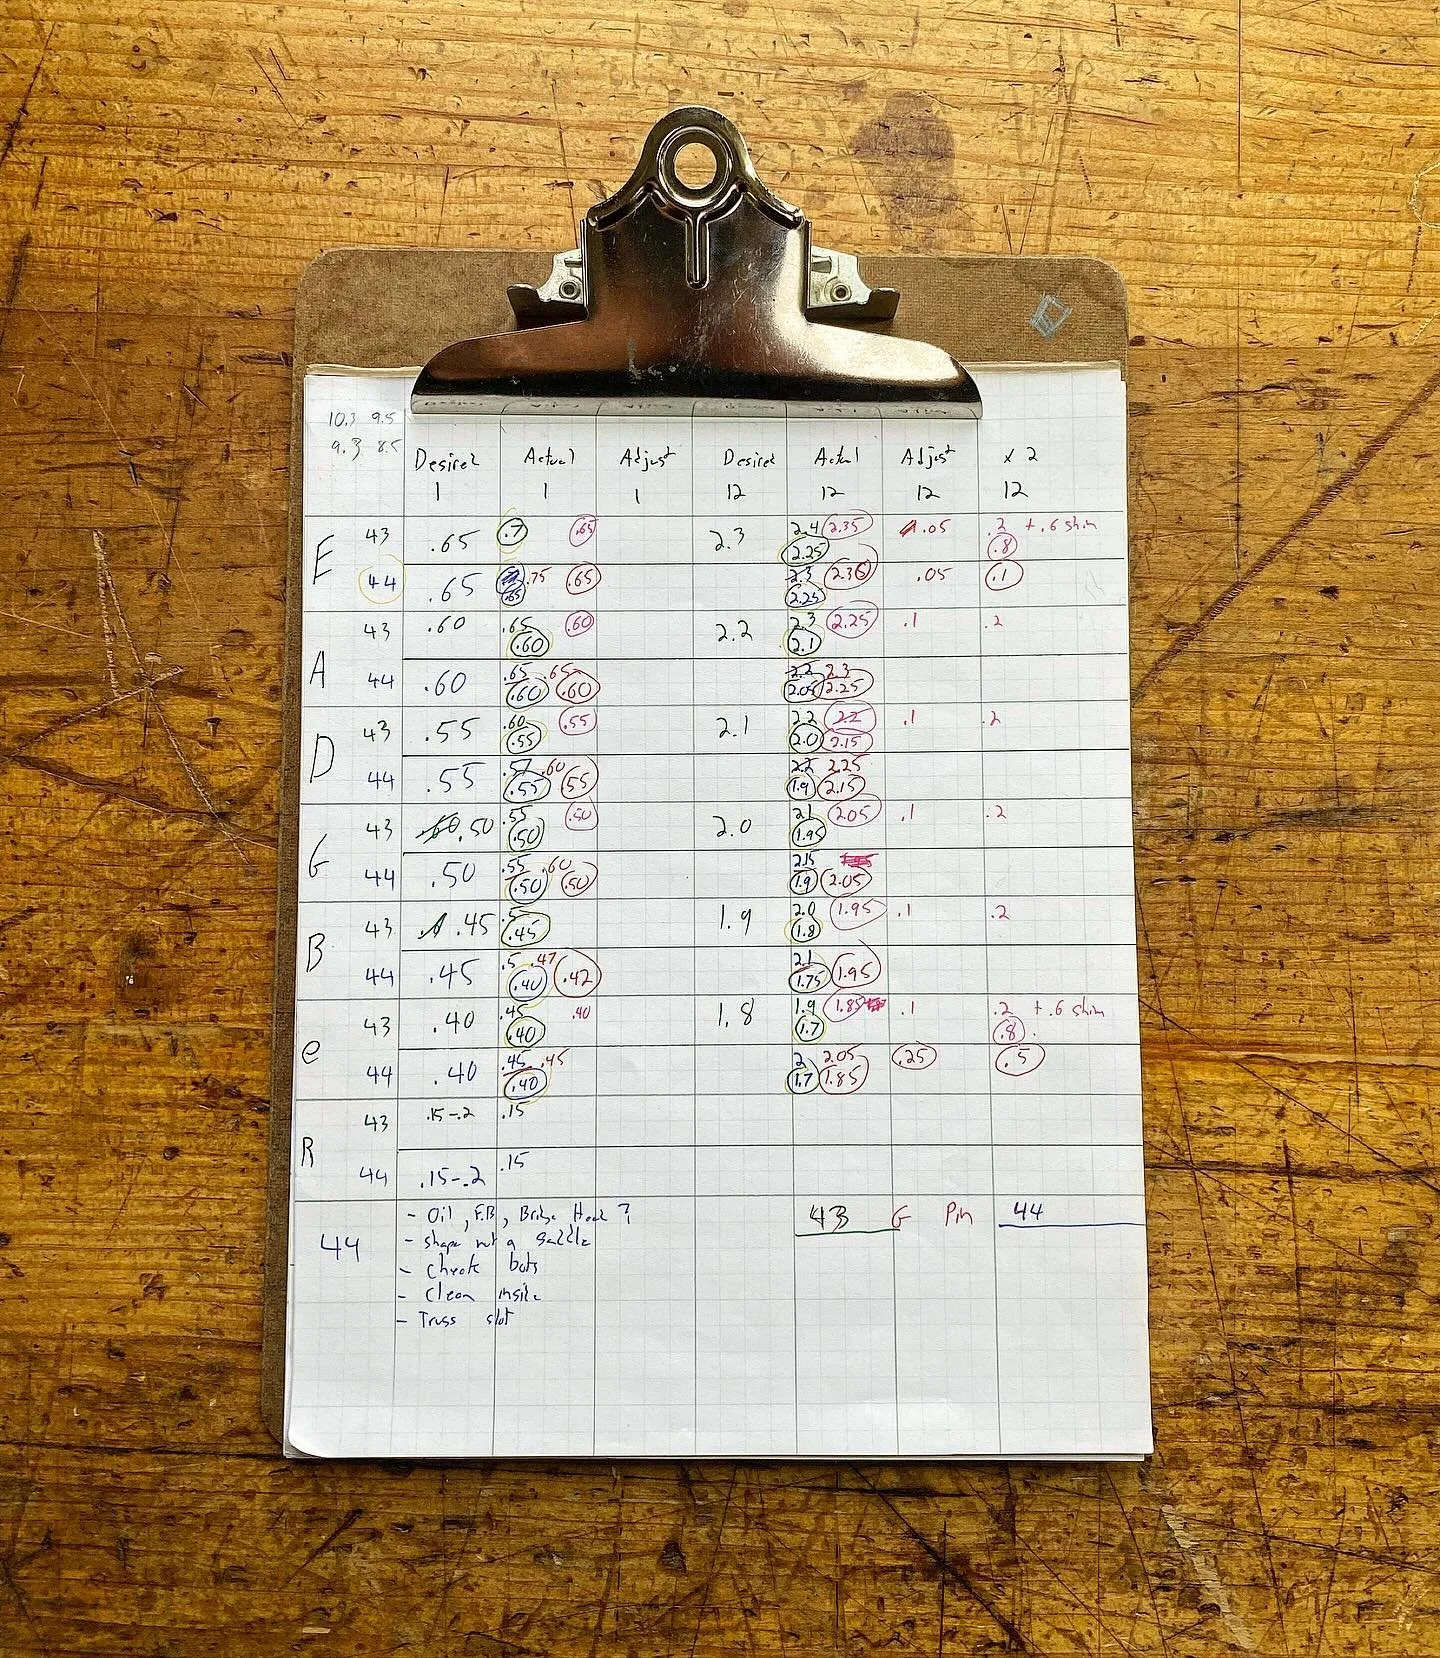 10.3 9.5
9.3 8.5
Desired Actual Adjust Desired Actual Adjust x 2
1 1 1 12 12 12 12
E 43 .65 .7 .65 2.3 2.4 2.35 .05 .2 + .6 shim
2.25 .8
44 .65 .75 .65 2.3 2.35 .05 .1
.65 2.25
A 43 .60 .65 .60 2.2 2.3 2.25 .1 .2
.60 2.1
44 .60 .65 .65 2.2 2.3
.60 .60 2.05 2.25
D 43 .55 .60 .55 2.1 2.2 2.2 .1 .2
.55 2.0 2.15
44 .55 .57 .60 2.2 2.25
.55 .55 1.9 2.15
G 43 .60 .50 .55 .50 2.0 2.1 2.05 .1 .2
.50 1.95
44 .50 .55 .60 2.15
.50 .50 1.9 2.05
B 43 .45 .5 1.9 2.0 1.95 .1 .2
.45 1.8
44 .45 .5 .47 2.1
.40 .42 1.75 1.95
e 43 .40 .45 .40 1.8 1.9 1.85 .1 .2 + .6 shim
.40 1.7 .8
44 .40 .45 .45 2 2.05 .25 .5
.40 1.7 1.85
R 43 .15-.2 .15
44 .15-.2 .15
44 - Oil, F.B, Bridge, Head ? 43 G Pin 44
- shape nut & saddle
- Check bolts
- Clean inside
- Truss slot